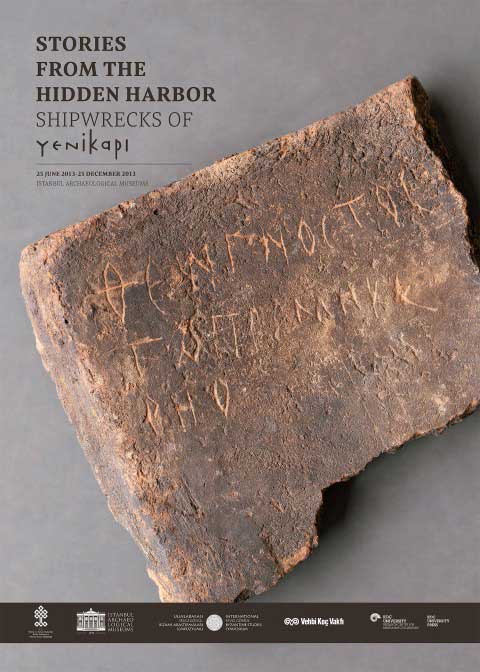 STORIES
FROM THE
HIDDEN HARBOR
SHIPWRECKS OF
yenikapı
25 JUNE 2013-25 DECEMBER 2013
ISTANBUL ARCHAEOLOGICAL MUSEUMS
ΘΕΩΓΝΟСΤΟС
ISTANBUL
ARCHAEO
LOGICAL
MUSEUMS
ULUSLARARASI
SEVGİ GÖNÜL
BİZANS ARAŞTIRMALARI
SEMPOZYUMU
INTERNATIONAL
SEVGİ GÖNÜL
BYZANTINE STUDIES
SYMPOSIUM
Vehbi Koç Vakfı
KOÇ
UNIVERSITY
KOÇ
UNIVERSITY
PRESS